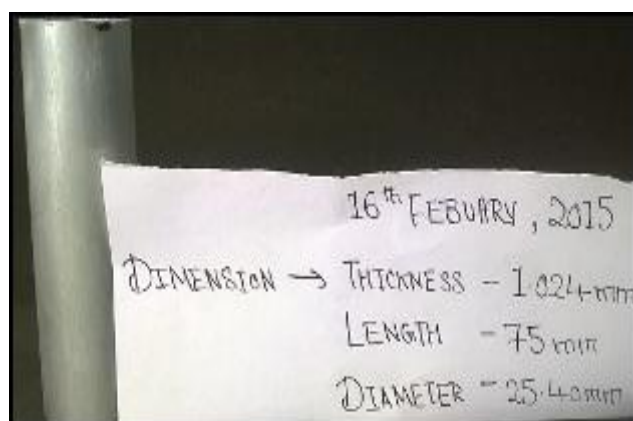 16th FEBUARY, 2015
DIMENSION → THICKNESS - 1.024mm
LENGTH - 75mm
DIAMETER - 25.40mm